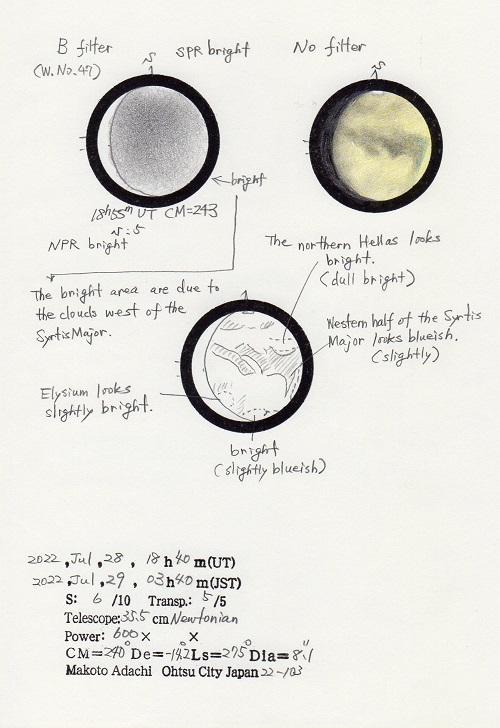 B filter
SPR bright
No filter
(W.No.47)
S
S
bright
18h55m UT CM=243
NPR bright
The northern Hellas looks
bright.
(dull bright)
The bright area are due to
the clouds west of the
Syrtis Major.
Nestern half of the Syrtis
Major looks blueish.
(slightly)
Elysium looks
slightly bright.
bright
(slightly blueish)
2022, Jul, 28, 18h40m(UT)
2022, Jul, 29, 03h40m(JST)
S: 6 /10 Transp.: 5/5
Telescope: 35.5 cm Newtonian
Power: 600× ×
CM=240° De=-14.2 Ls=275° Dia=8.1"
Makoto Adachi Ohtsu City Japan 22-103